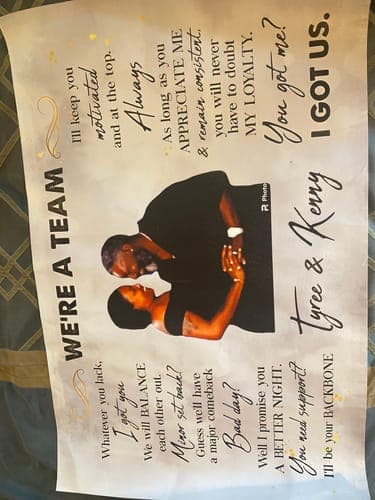 WE'RE A TEAM
Whatever you lack,
I got you
We will BALANCE
each other out.
Minor set back?
Guess we'll have
a major comeback
Bad day?
Well I promise you
A BETTER NIGHT.
You need support?
I'll be your BACKBONE
I'll keep you
motivated
and at the top.
Always
As long as you
APPRECIATE ME
& remain consistent,
you will never
have to doubt
MY LOYALTY.
You got me?
I GOT US.
Photo
Tyree & Kenny